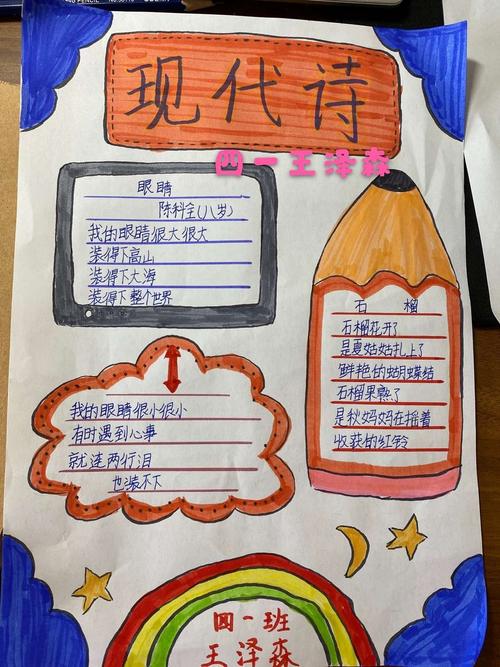 现代诗
四一王泽森
眼睛
陈科全(八岁)
我的眼睛很大很大
装得下高山
装得下大海
装得下整个世界
我的眼睛很小很小
有时遇到心事
就连两行泪
也装不下
石榴
石榴花开了
是夏姑姑扎上了
鲜艳的蝴蝶结
石榴果熟了
是秋妈妈在摇着
收获的红铃
四一班
王泽森